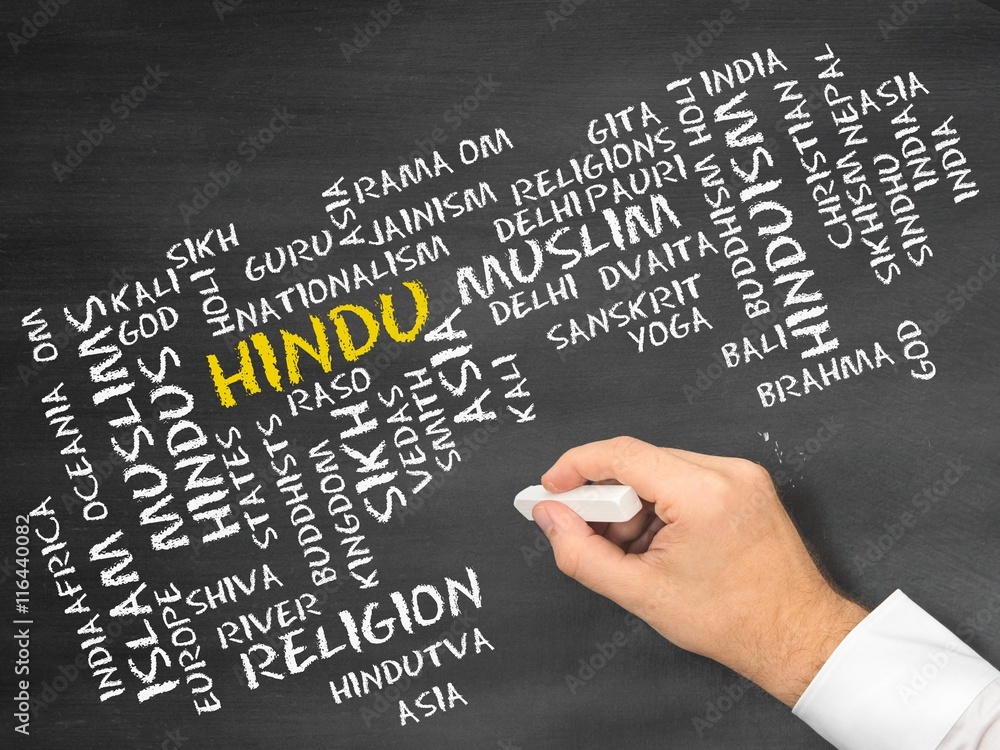 INDIA
HOLI
ASIA
NEPAL
CHRISTIAN
GITA
RELIGIONS
HINDUISM
INDIA
INDIA
OM
RAMA
ASIA
JAINISM
DELHI
PAURI
BUDDHISM
SIKHISM
SINDHU
SIKH
GURU
MUSLIM
KALI
HOLI
NATIONALISM
DELHI
DVAITA
GOD
HINDU
SANSKRIT
YOGA
BALI
BRAHMA
GOD
OM
MUSLIMS
HINDUS
RASO
ASIA
KALI
OCEANIA
STATES
BUDDHISTS
KINGDOM
SIKH
VEDAS
SMITH
AFRICA
INDIA
ISLAM
EUROPE
SHIVA
RIVER
RELIGION
HINDUTVA
ASIA
Adobe Stock | #116440082
Adobe Stock